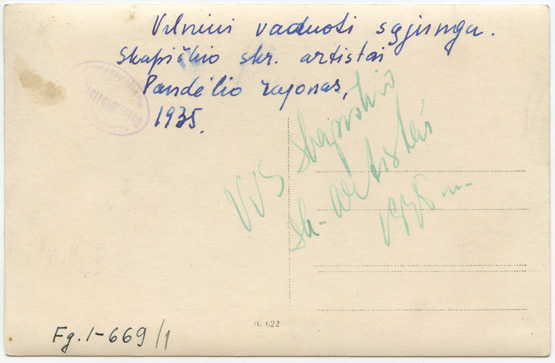 Vilniui vaduoti sąjunga.
Skapiškio skr. artistai
Pandėlio rajonas,
1935.
VVS Skapiškio
sk. artistai
1935 m.
Fg. 1-669/1